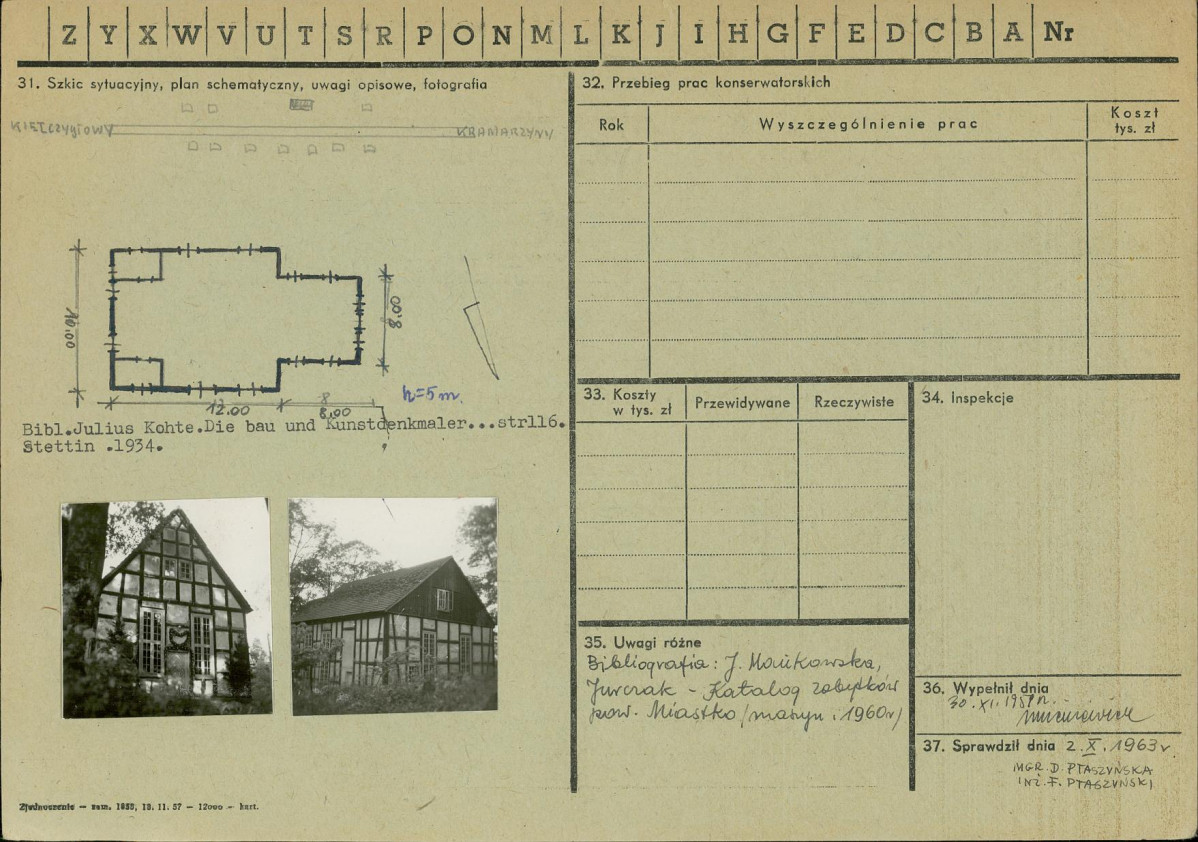 Z Y X W V U T S R P O N M L K J I H G F E D C B A Nr
31. Szkic sytuacyjny, plan schematyczny, uwagi opisowe, fotografia
KIEŁCZYGŁOWY
KRAMARZYNY
10.00
8.00
12.00
8
8,00
h=5m.
Bibl.Julius Kohte.Die bau und Kunstdenkmaler...str116.
Stettin .1934.
Zjednoczenie — zam. 1655, 13. 11. 57 — 12000 — kart.
32. Przebieg prac konserwatorskich
Rok
Wyszczególnienie prac
Koszt
tys. zł
33. Koszty
w tys. zł
Przewidywane
Rzeczywiste
34. Inspekcje
35. Uwagi różne
Bibliografia: J.
Jurczak - Katalog zabytków
pow. Miastko /maszyn. 1960r/
36. Wypełnił dnia
30.XI.1959r.
37. Sprawdził dnia 2.X.1963r
MGR. D. PTASZYŃSKA
INŻ. F. PTASZYŃSKI